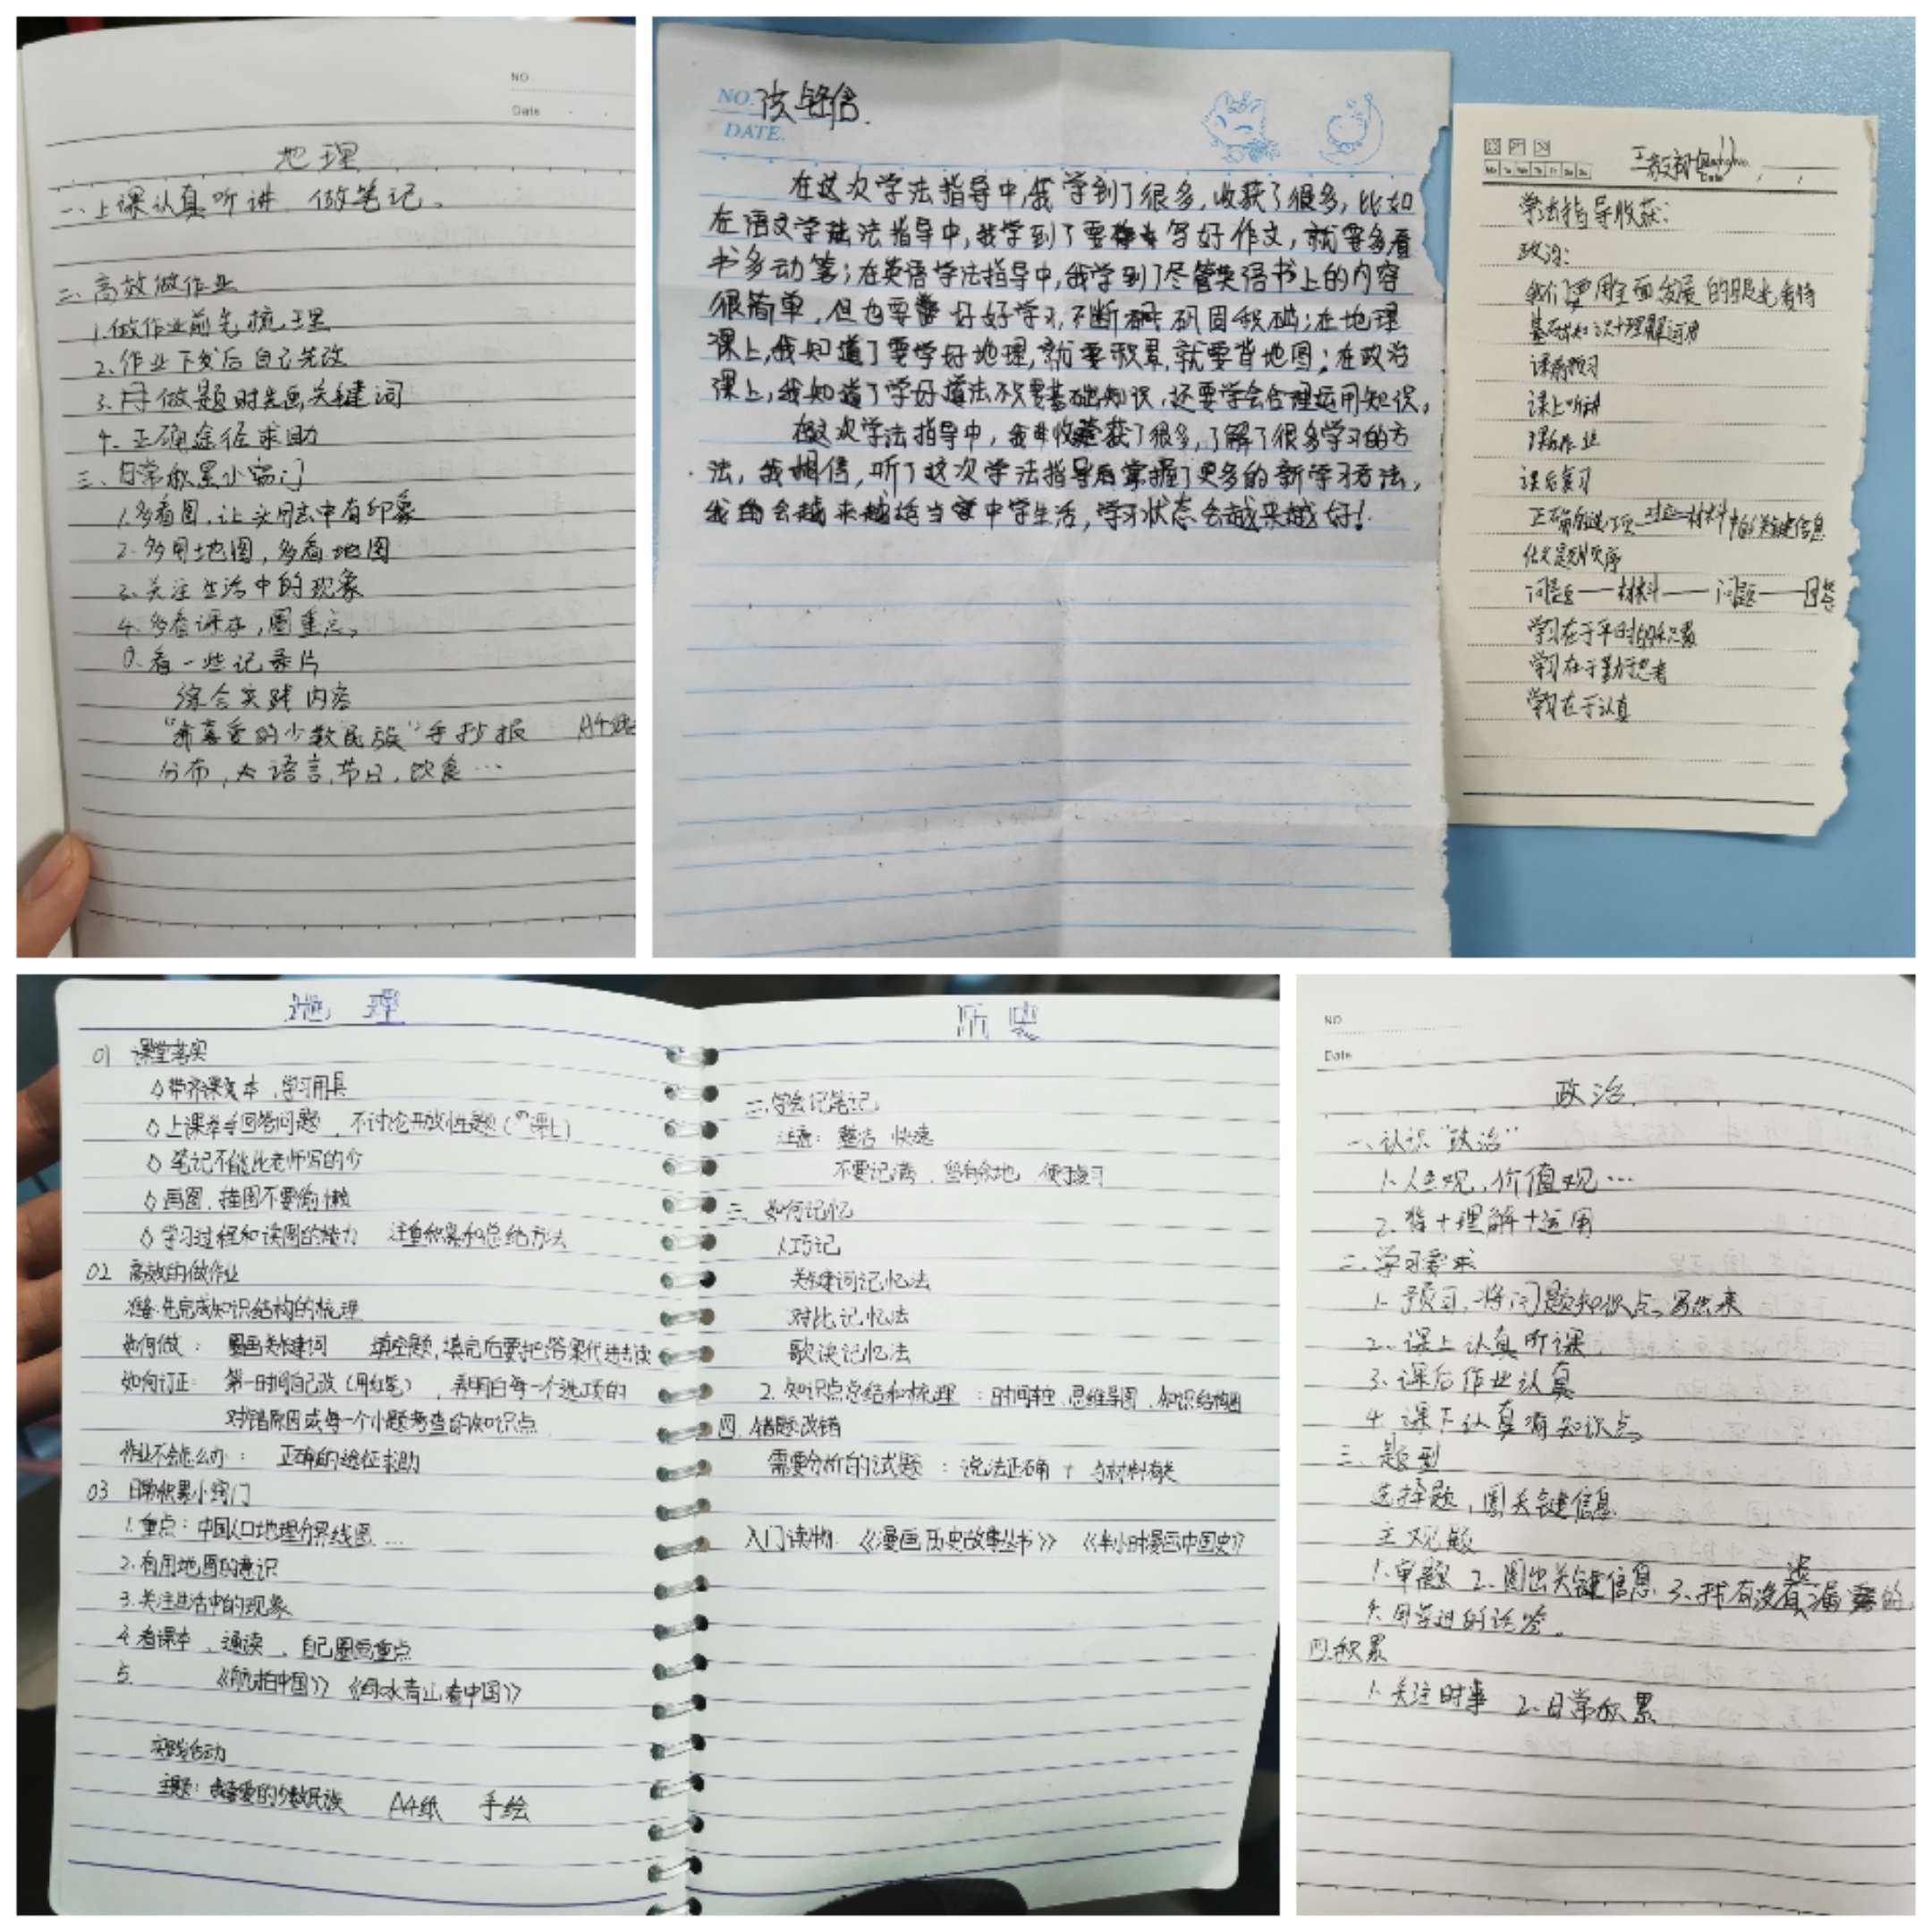 NO.
Date
地理
一、上课认真听讲 做笔记。
二、高效做作业
1.做作业前先梳理
2.作业下发后自己先改
3.做题时先画关键词
4.正确途径求助
三、日常积累小窍门
1.多看图,让头脑中有印象
2.多用地图,多看地图
3.关注生活中的现象
4.多看课本,圈重点。
看一些记录片
综合实践内容
“我喜爱的少数民族”手抄报 A4纸
分布,语言,节日,饮食…
NO.
DATE.
在这次学法指导中,我学到了很多,收获了很多,比如
在语文学法指导中,我学到了要写好作文,就要多看
书多动笔;在英语学法指导中,我学到了尽管英语书上的内容
很简单,但也要好好学习,不断巩固积础;在地理
课上,我知道了要学好地理,就要积累,就要背地图;在政治
课上,我知道了学好道法不只要基础知识,还要学会合理运用知识。
在这次学法指导中,我收获了很多,了解了很多学习的方
法,我相信,听了这次学法指导后掌握了更多的新学习方法,
我会越来越适当中学生活,学习状态会越来越好!
Date
学法指导收获:
政治:
我们要用全面发展的眼光看待
基础知识+理解运用
课前预习
课上听讲
课后作业
课后复习
正确的选项 对应 材料中的关键信息
做题顺序
问题——材料——问题——回答
学习在于平时的积累
学习在于勤于思考
学习在于认真
地 理
01 课堂落实
◇带齐课本,学习用具
◇上课举手回答问题,不讨论开放性题(课上)
◇笔记不能比老师写的少
◇画图,描图不要偷懒
◇学习过程和读图的能力 注重积累和总结方法
02 高效的做作业
准备:先完成知识结构的梳理
如何做: 圈画关键词 填空题,填完后要把答案代进去读
如何订正: 第一时间自己改(用红笔),弄明白每一个选项的
对错原因或每一个小题考查的知识点
作业不会怎么办: 正确的途径求助
03 日常积累小窍门
1.重点:中国人口地理分界线图…
2.有用地图的意识
3.关注生活中的现象
4.看课本,通读,自己圈画重点
5. 《航拍中国》《绿水青山看中国》
实践活动
主题:我喜爱的少数民族 A4纸 手绘
历 史
二.学会记笔记
注意: 整洁 快速
不要记满,留有余地,便于复习
三. 如何记忆
1.巧记
关键词记忆法
对比记忆法
歌诀记忆法
2.知识点总结和梳理:时间轴.思维导图.知识结构图
四.错题改错
需要分析的试题:说法正确 + 与材料有关
入门读物:《漫画历史故事丛书》《半小时漫画中国史》
NO.
Date
政治
一、认识“政治”
1.人生观,价值观…
2.背+理解+运用
二、学习要求
1.预习,将问题知识点写出来
2.课上认真听课
3.课后作业认真
4.课下认真看知识点
三、题型
选择题,圈关键信息
主观题
1.审题 2.圈出关键信息 3.找有没有遗漏的
4.用学过的话答。
四.积累
1.关注时事 2.日常积累